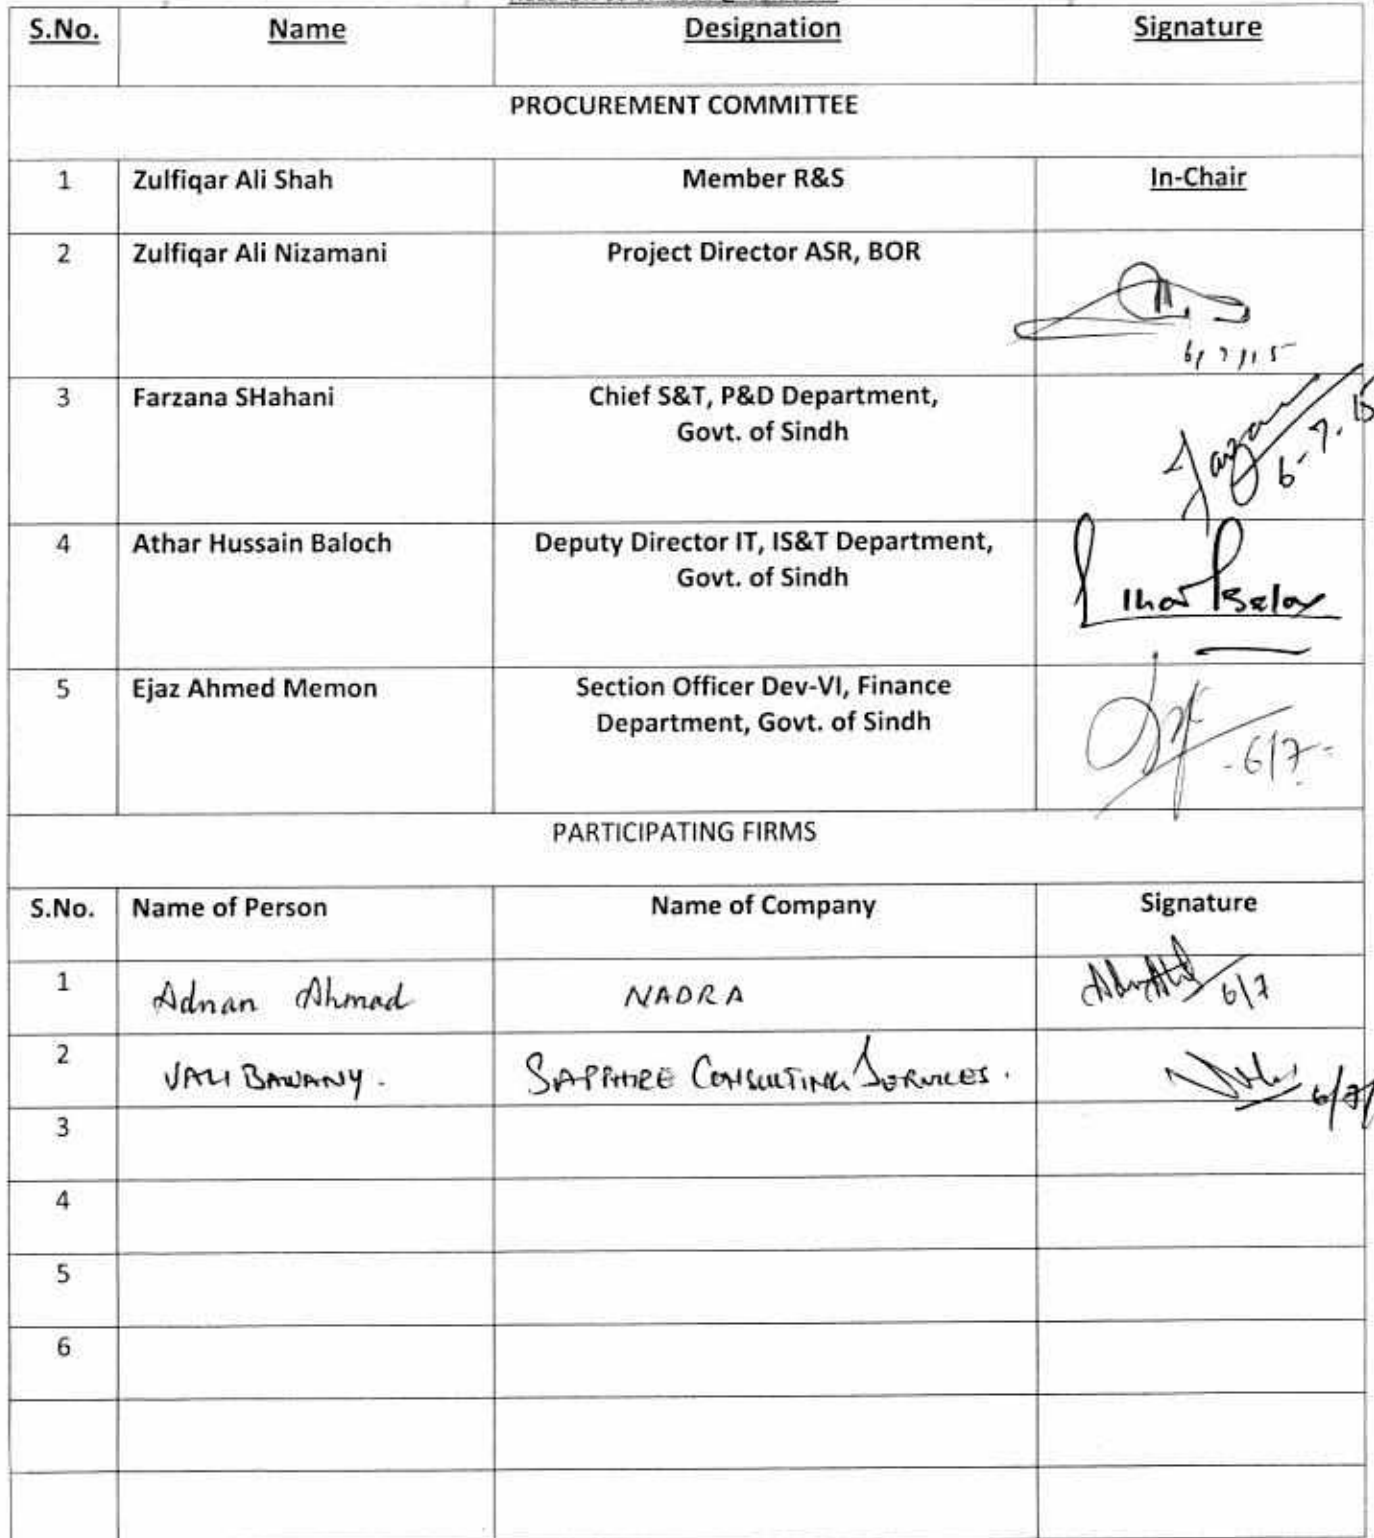 S.No. Name Designation Signature
PROCUREMENT COMMITTEE
1 Zulfiqar Ali Shah Member R&S In-Chair
2 Zulfiqar Ali Nizamani Project Director ASR, BOR
6/7/15
3 Farzana SHahani Chief S&T, P&D Department,
Govt. of Sindh
6-7-15
4 Athar Hussain Baloch Deputy Director IT, IS&T Department,
Govt. of Sindh
5 Ejaz Ahmed Memon Section Officer Dev-VI, Finance
Department, Govt. of Sindh
-6/7-
PARTICIPATING FIRMS
S.No. Name of Person Name of Company Signature
1 Adnan Ahmad NADRA 6/7
2 VALI BAWANY. SAPPHIRE CONSULTING SERVICES. 6/7/
3
4
5
6